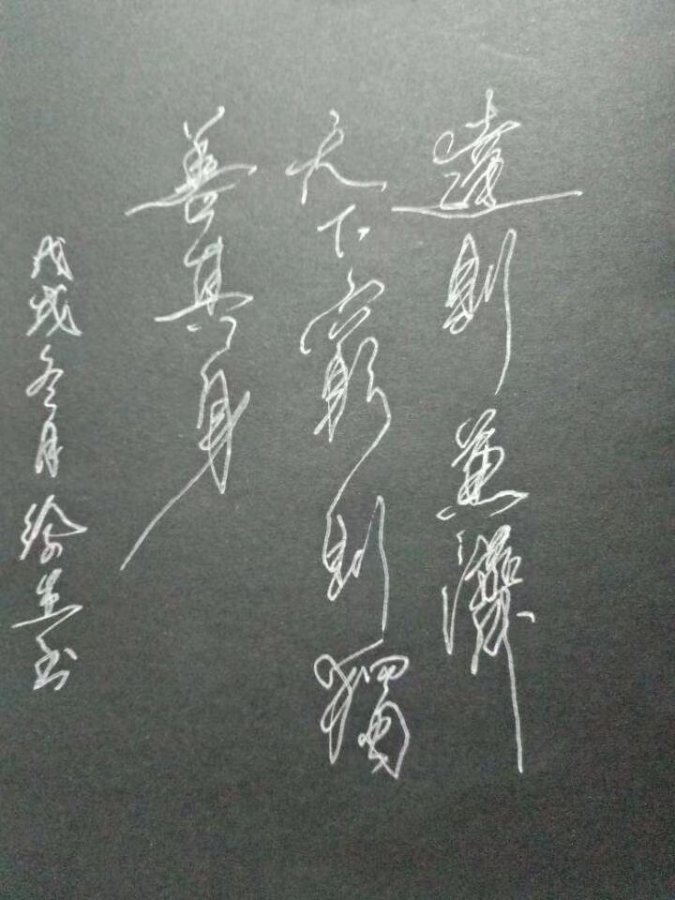 達則兼濟
天下窮則獨
善其身
戊戌冬月徐生玉